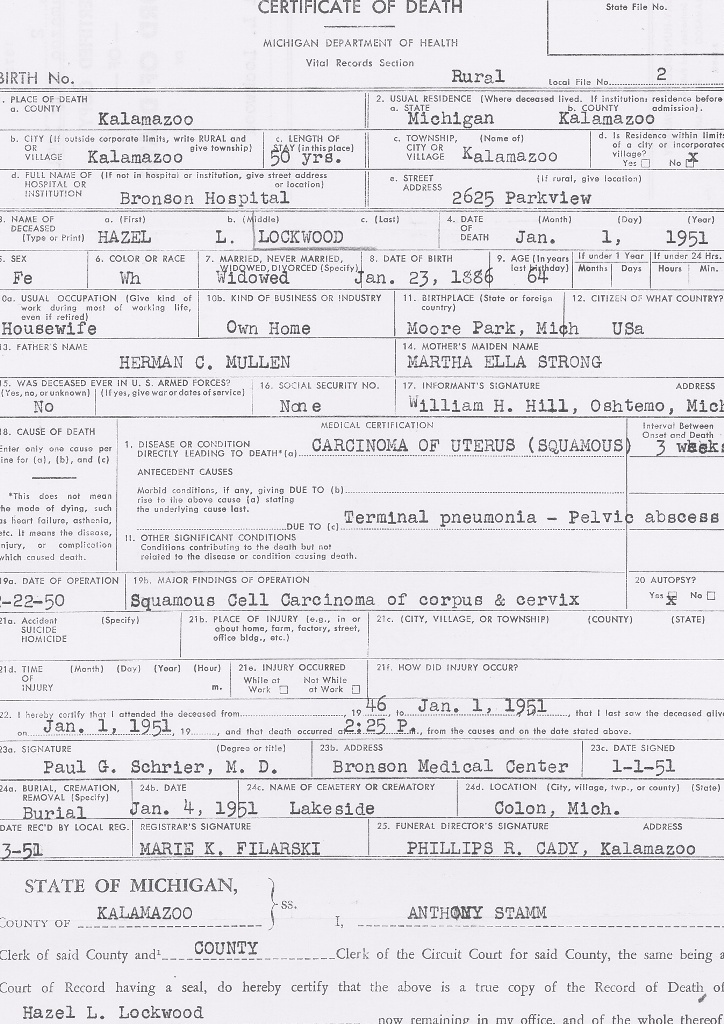 CERTIFICATE OF DEATH
State File No.
MICHIGAN DEPARTMENT OF HEALTH
Vital Records Section
BIRTH No.
Rural
Local File No. 2
1. PLACE OF DEATH
a. COUNTY
Kalamazoo
2. USUAL RESIDENCE (Where deceased lived. If institution: residence before
a. STATE b. COUNTY admission).
Michigan Kalamazoo
b. CITY (If outside corporate limits, write RURAL and
OR give township)
VILLAGE Kalamazoo
c. LENGTH OF
STAY (in this place)
50 yrs.
c. TOWNSHIP, (Name of)
CITY OR
VILLAGE Kalamazoo
d. Is Residence within limits
of a city or incorporated
village?
Yes No X
d. FULL NAME OF (If not in hospital or institution, give street address
HOSPITAL OR or location)
INSTITUTION Bronson Hospital
e. STREET (If rural, give location)
ADDRESS
2625 Parkview
3. NAME OF a. (First) b. (Middle) c. (Last)
DECEASED
(Type or Print) HAZEL L. LOCKWOOD
4. DATE (Month) (Day) (Year)
OF
DEATH Jan. 1, 1951
5. SEX
Fe
6. COLOR OR RACE
Wh
7. MARRIED, NEVER MARRIED,
WIDOWED, DIVORCED (Specify)
Widowed
8. DATE OF BIRTH
Jan. 23, 1886
9. AGE (In years
last birthday)
64
If under 1 Year
Months Days
If under 24 Hrs.
Hours Min.
10a. USUAL OCCUPATION (Give kind of
work during most of working life,
even if retired)
Housewife
10b. KIND OF BUSINESS OR INDUSTRY
Own Home
11. BIRTHPLACE (State or foreign
country)
Moore Park, Mich
12. CITIZEN OF WHAT COUNTRY?
USa
13. FATHER'S NAME
HERMAN C. MULLEN
14. MOTHER'S MAIDEN NAME
MARTHA ELLA STRONG
15. WAS DECEASED EVER IN U. S. ARMED FORCES?
(Yes, no, or unknown) (If yes, give war or dates of service)
No
16. SOCIAL SECURITY NO.
None
17. INFORMANT'S SIGNATURE ADDRESS
William H. Hill, Oshtemo, Mich
MEDICAL CERTIFICATION
18. CAUSE OF DEATH
Enter only one cause per
line for (a), (b), and (c)
*This does not mean
the mode of dying, such
as heart failure, asthenia,
etc. It means the disease,
injury, or complication
which caused death.
1. DISEASE OR CONDITION
DIRECTLY LEADING TO DEATH*(a) CARCINOMA OF UTERUS (SQUAMOUS)
Interval Between
Onset and Death
3 weeks
ANTECEDENT CAUSES
Morbid conditions, if any, giving DUE TO (b)
rise to the above cause (a) stating
the underlying cause last.
DUE TO (c) Terminal pneumonia - Pelvic abscess
II. OTHER SIGNIFICANT CONDITIONS
Conditions contributing to the death but not
related to the disease or condition causing death.
19a. DATE OF OPERATION
-22-50
19b. MAJOR FINDINGS OF OPERATION
Squamous Cell Carcinoma of corpus & cervix
20 AUTOPSY?
Yes X No
21a. Accident (Specify)
SUICIDE
HOMICIDE
21b. PLACE OF INJURY (e.g., in or
about home, farm, factory, street,
office bldg., etc.)
21c. (CITY, VILLAGE, OR TOWNSHIP) (COUNTY) (STATE)
21d. TIME (Month) (Day) (Year) (Hour)
OF
INJURY m.
21e. INJURY OCCURRED
While at Not While
Work at Work
21f. HOW DID INJURY OCCUR?
22. I hereby certify that I attended the deceased from , 19 46 to Jan. 1, 1951, that I last saw the deceased alive
on Jan. 1, 1951, 19 , and that death occurred at 2:25 P., from the causes and on the date stated above.
23a. SIGNATURE (Degree or title)
Paul G. Schrier, M. D.
23b. ADDRESS
Bronson Medical Center
23c. DATE SIGNED
1-1-51
24a. BURIAL, CREMATION,
REMOVAL (Specify)
Burial
24b. DATE
Jan. 4, 1951
24c. NAME OF CEMETERY OR CREMATORY
Lakeside
24d. LOCATION (City, village, twp., or county) (State)
Colon, Mich.
DATE REC'D BY LOCAL REG.
3-51
REGISTRAR'S SIGNATURE
MARIE K. FILARSKI
25. FUNERAL DIRECTOR'S SIGNATURE ADDRESS
PHILLIPS R. CADY, Kalamazoo
STATE OF MICHIGAN,
ss.
COUNTY OF KALAMAZOO
I, ANTHONY STAMM
Clerk of said County and¹ COUNTY Clerk of the Circuit Court for said County, the same being a
Court of Record having a seal, do hereby certify that the above is a true copy of the Record of Death of
Hazel L. Lockwood now remaining in my office, and of the whole thereof